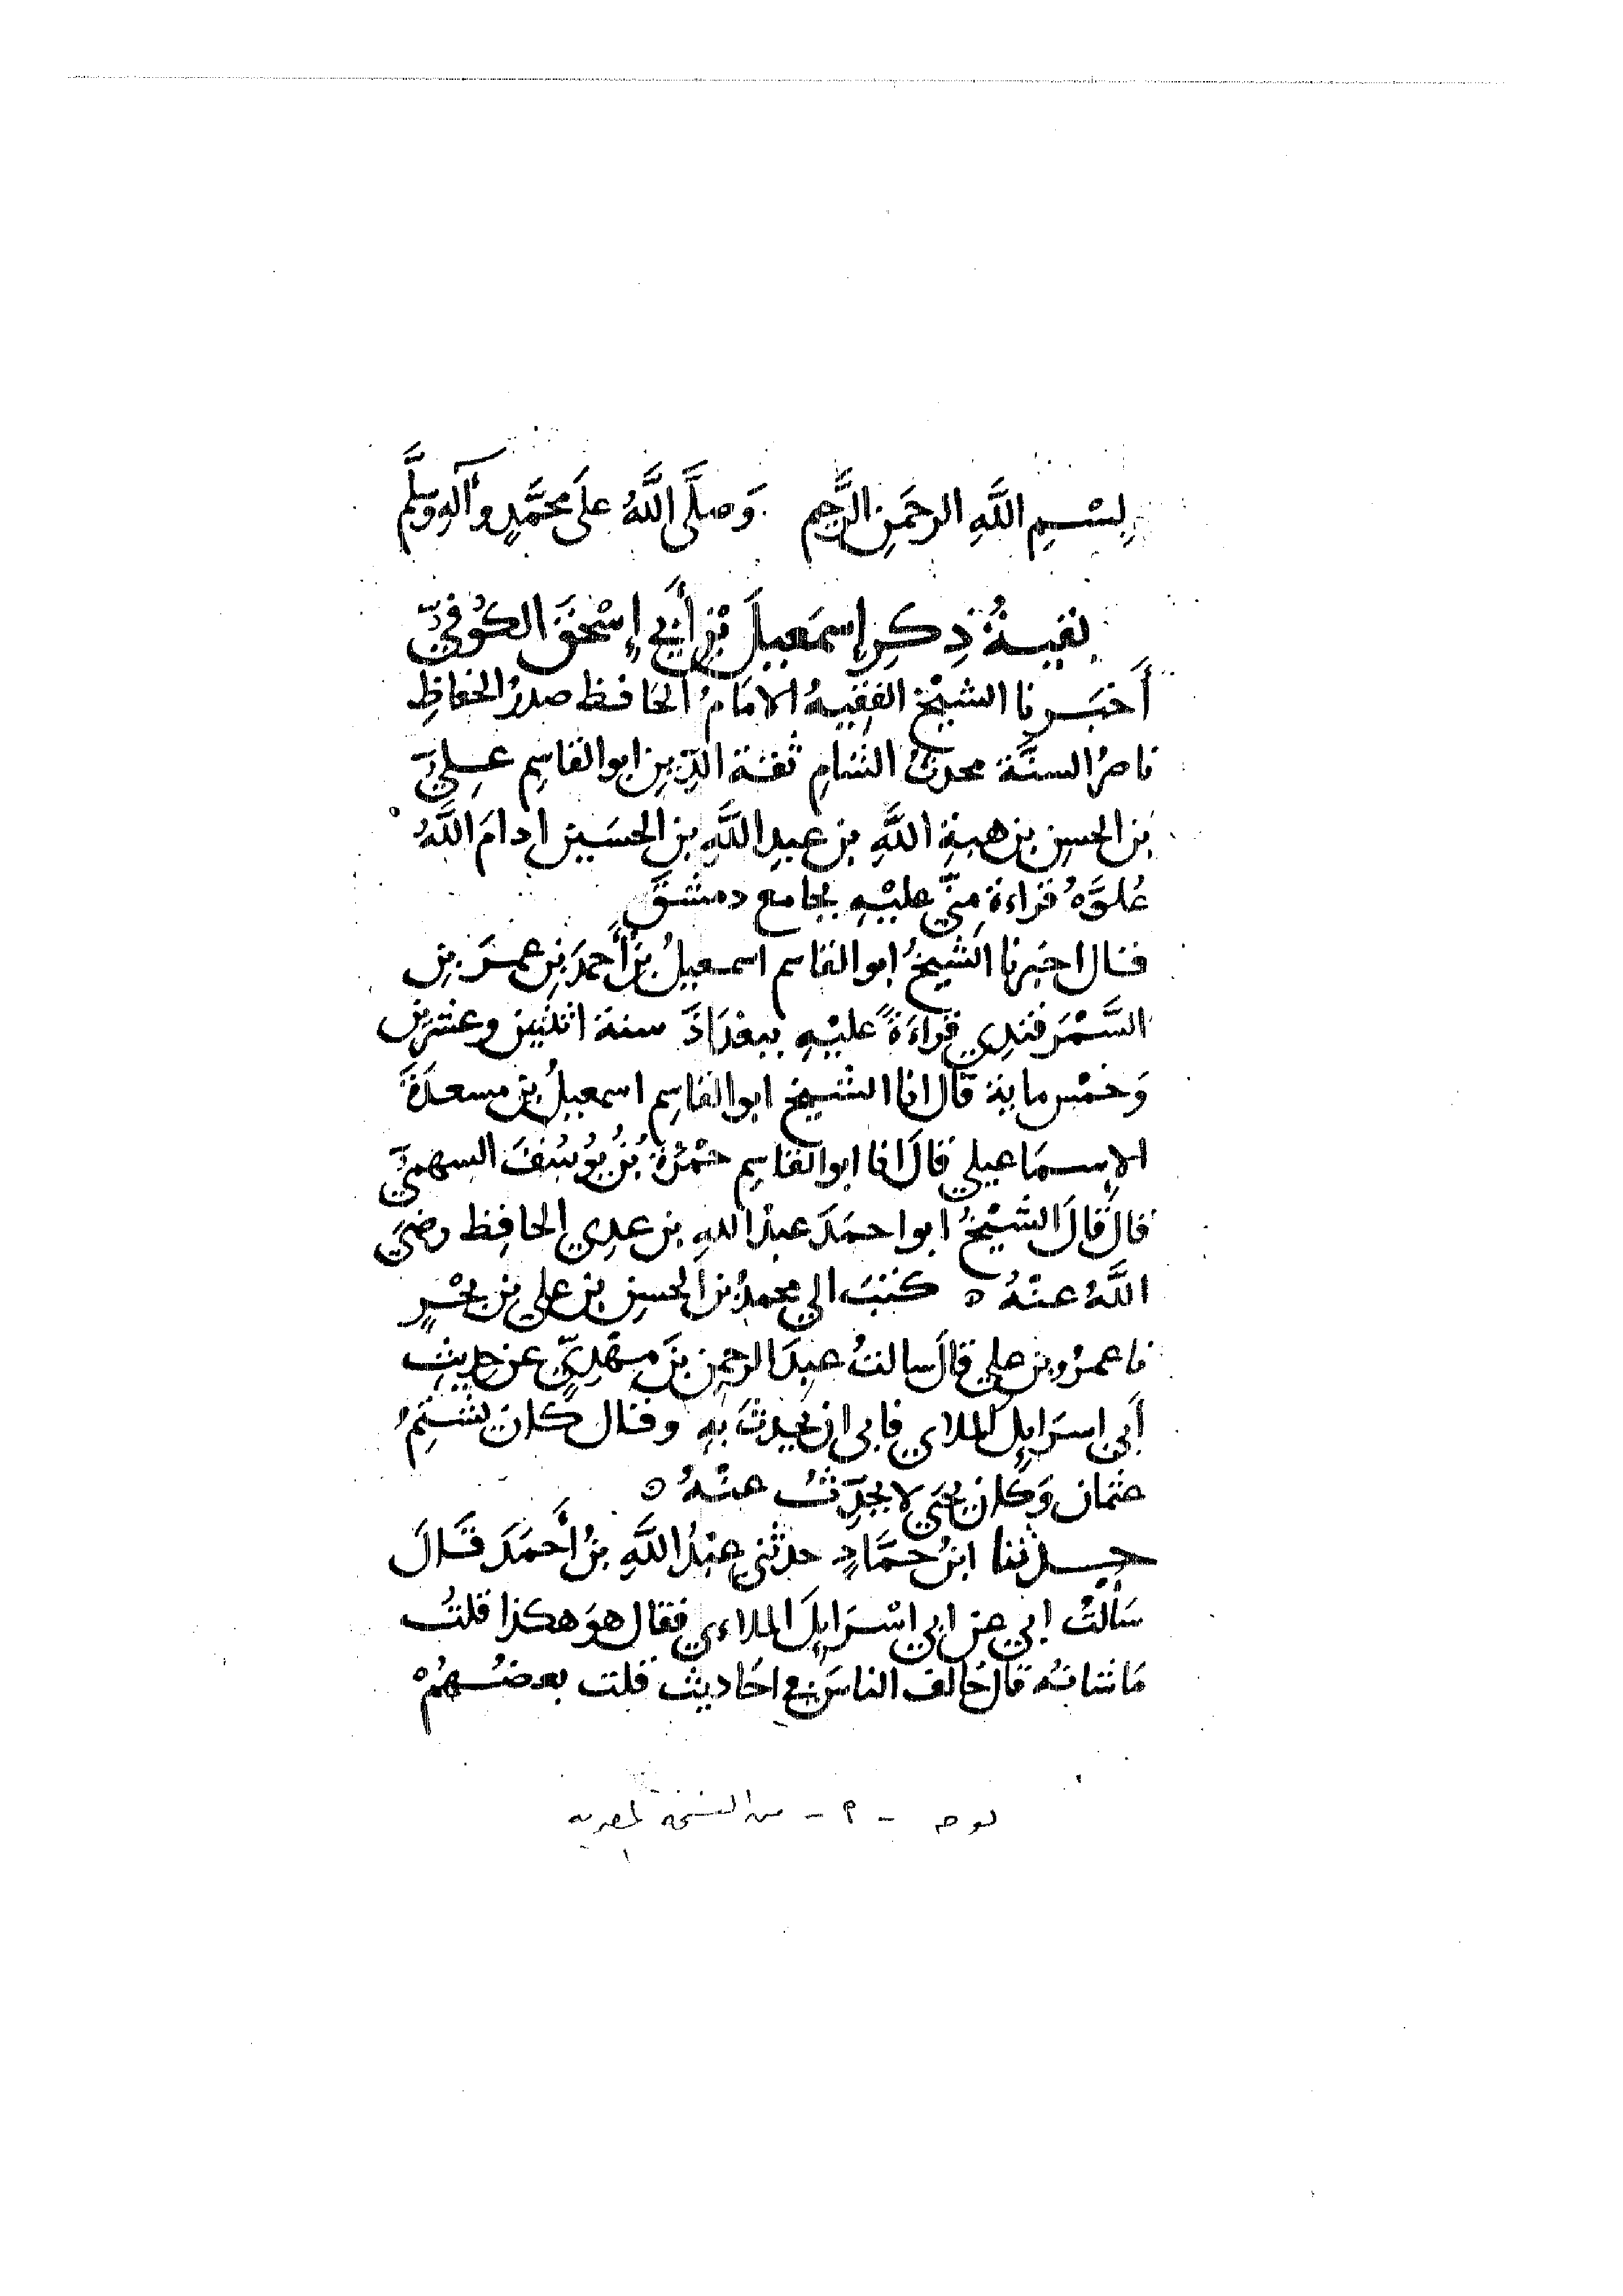 بِسْمِ اللَّهِ الرحمَنِ الرَّحِيم وَصلَّى اللَّهُ علَى محمَّدٍ وآلهِ وسلَّم
بقيةُ ذِكرِ إسمَعيلَ بْنِ أَبي إِسْحَقَ الكُوفيِّ
أَخبَرنا الشيْخُ الفقِيهُ الامَامُ الحَافظ صدرُ الحفاظِ
ناصرُ السنَّة محدثُ الشامِ ثقة الدِّينِ ابوالقاسِم عليُّ
بن الحسن بن هبةِ اللَّهِ بن عبدِ اللَّهِ بن الحسَين ادامَ اللَّهُ
عُلوَّهُ قراءةً مِنّي عليْهِ بجامع دمشقَ
قال اخبَرنا الشيخُ ابوالقاسم اسمعيلُ بنُ أَحمدَ بنِ عمرَ بنِ
السَّمْرَقندِي قراءَةً عليْهِ ببغدَادَ سنة اثنتين وعشرين
وَخمْس ماية قال انا الشيخ ابوالقاسِم اسمعيلُ بن مسعدَةَ
الإسمَاعيلي قالَ انا ابوالقاسِم حمْزةُ بْنُ يُوسُفَ السهميُّ
قال قالَ الشيْخُ ابواحمَدَ عبدُ اللهِ بن عدِي الحافِظ رضيَ
اللَّهُ عنْهُ ه كتبَ الي محمدُ بن الحسن بن علي بن بحْرٍ
نا عمرُو بن علي قالَ سالتُ عبدَ الرحمن بنَ مهْدِيٍّ عن حديثِ
أَبي اسرَايِل الملاي فابى ان يحدثَ بهِ وقال كان يشتِمُ
عثمان وَكان يحيَى لا يحدِّثُ عنْهُ ه
حدثنا ابنُ حمَّادٍ حدثني عبْدُ اللَّهِ بنُ أَحمَدَ قَالَ
سَألتُ ابي عن ابي اسْرَايلَ الملاءي فقال هوَ هكذا قلتُ
مَا شانهُ قال خَالف الناسَ في احَاديث قلت بعضُهُمْ
لوحه - ٢ - من النسخة المصرية